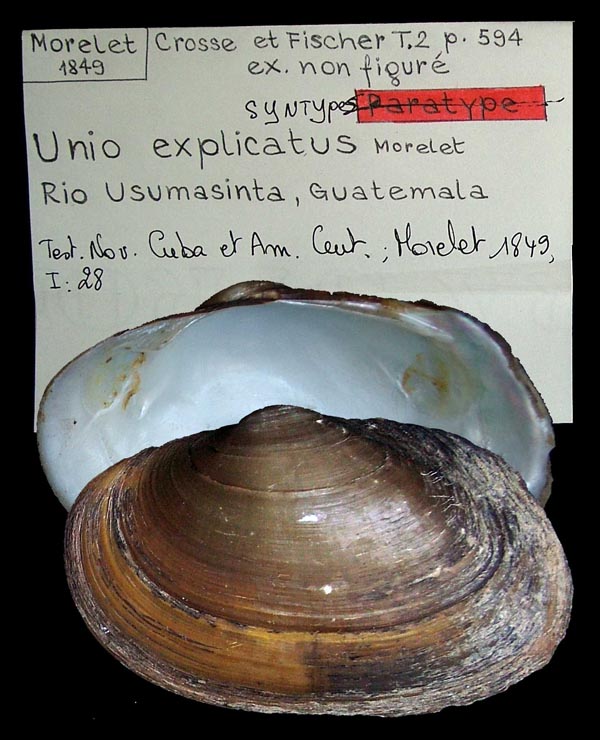 Morelet 1849
Crosse et Fischer T.2, p. 594
ex. non figuré
SYNTYPES Paratype
Unio explicatus Morelet
Rio Usumasinta, Guatemala
Test. Nov. Cuba et Am. Cent. ; Morelet 1849,
I: 28